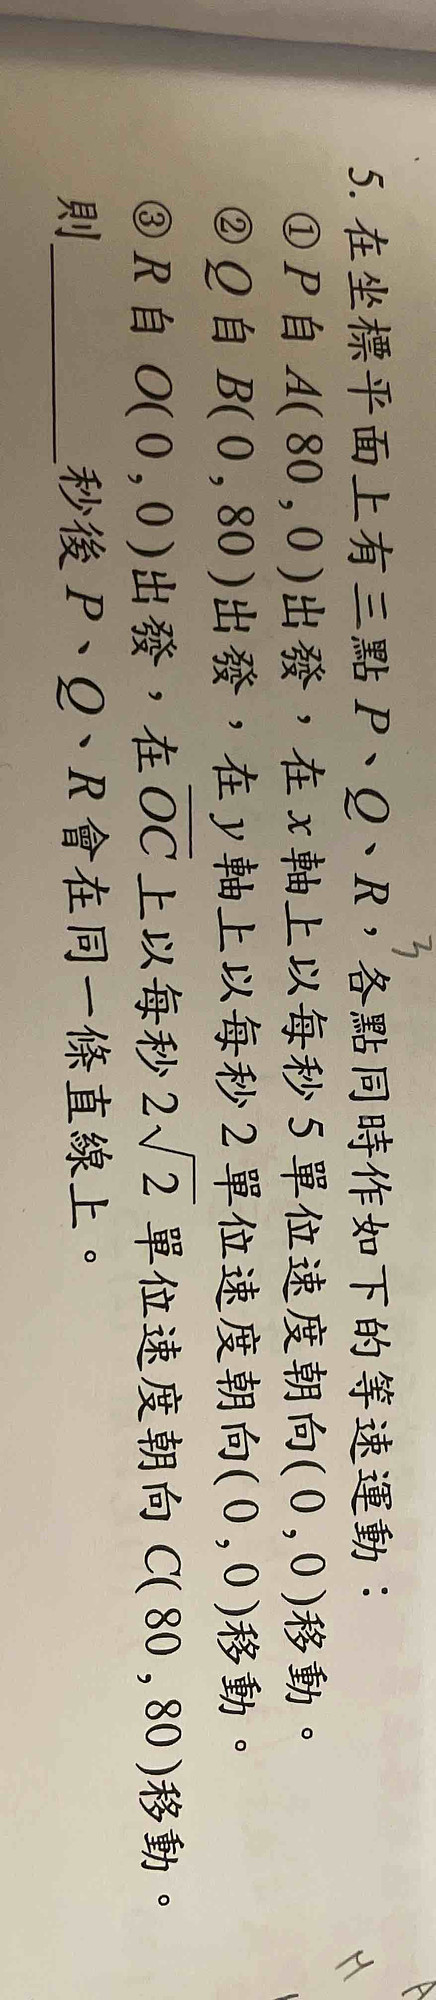 5. 在坐標平面上有三點 P、Q、R，各點同時作如下的等速運動：
① P 自 A(80 , 0)出發，在 x 軸上以每秒 5 單位速度朝向(0 , 0)移動。
② Q 自 B(0 , 80)出發，在 y 軸上以每秒 2 單位速度朝向(0 , 0)移動。
③ R 自 O(0 , 0)出發，在 \overline{OC} 上以每秒 2√2 單位速度朝向 C(80 , 80)移動。
則________秒後 P、Q、R 會在同一條直線上。
3